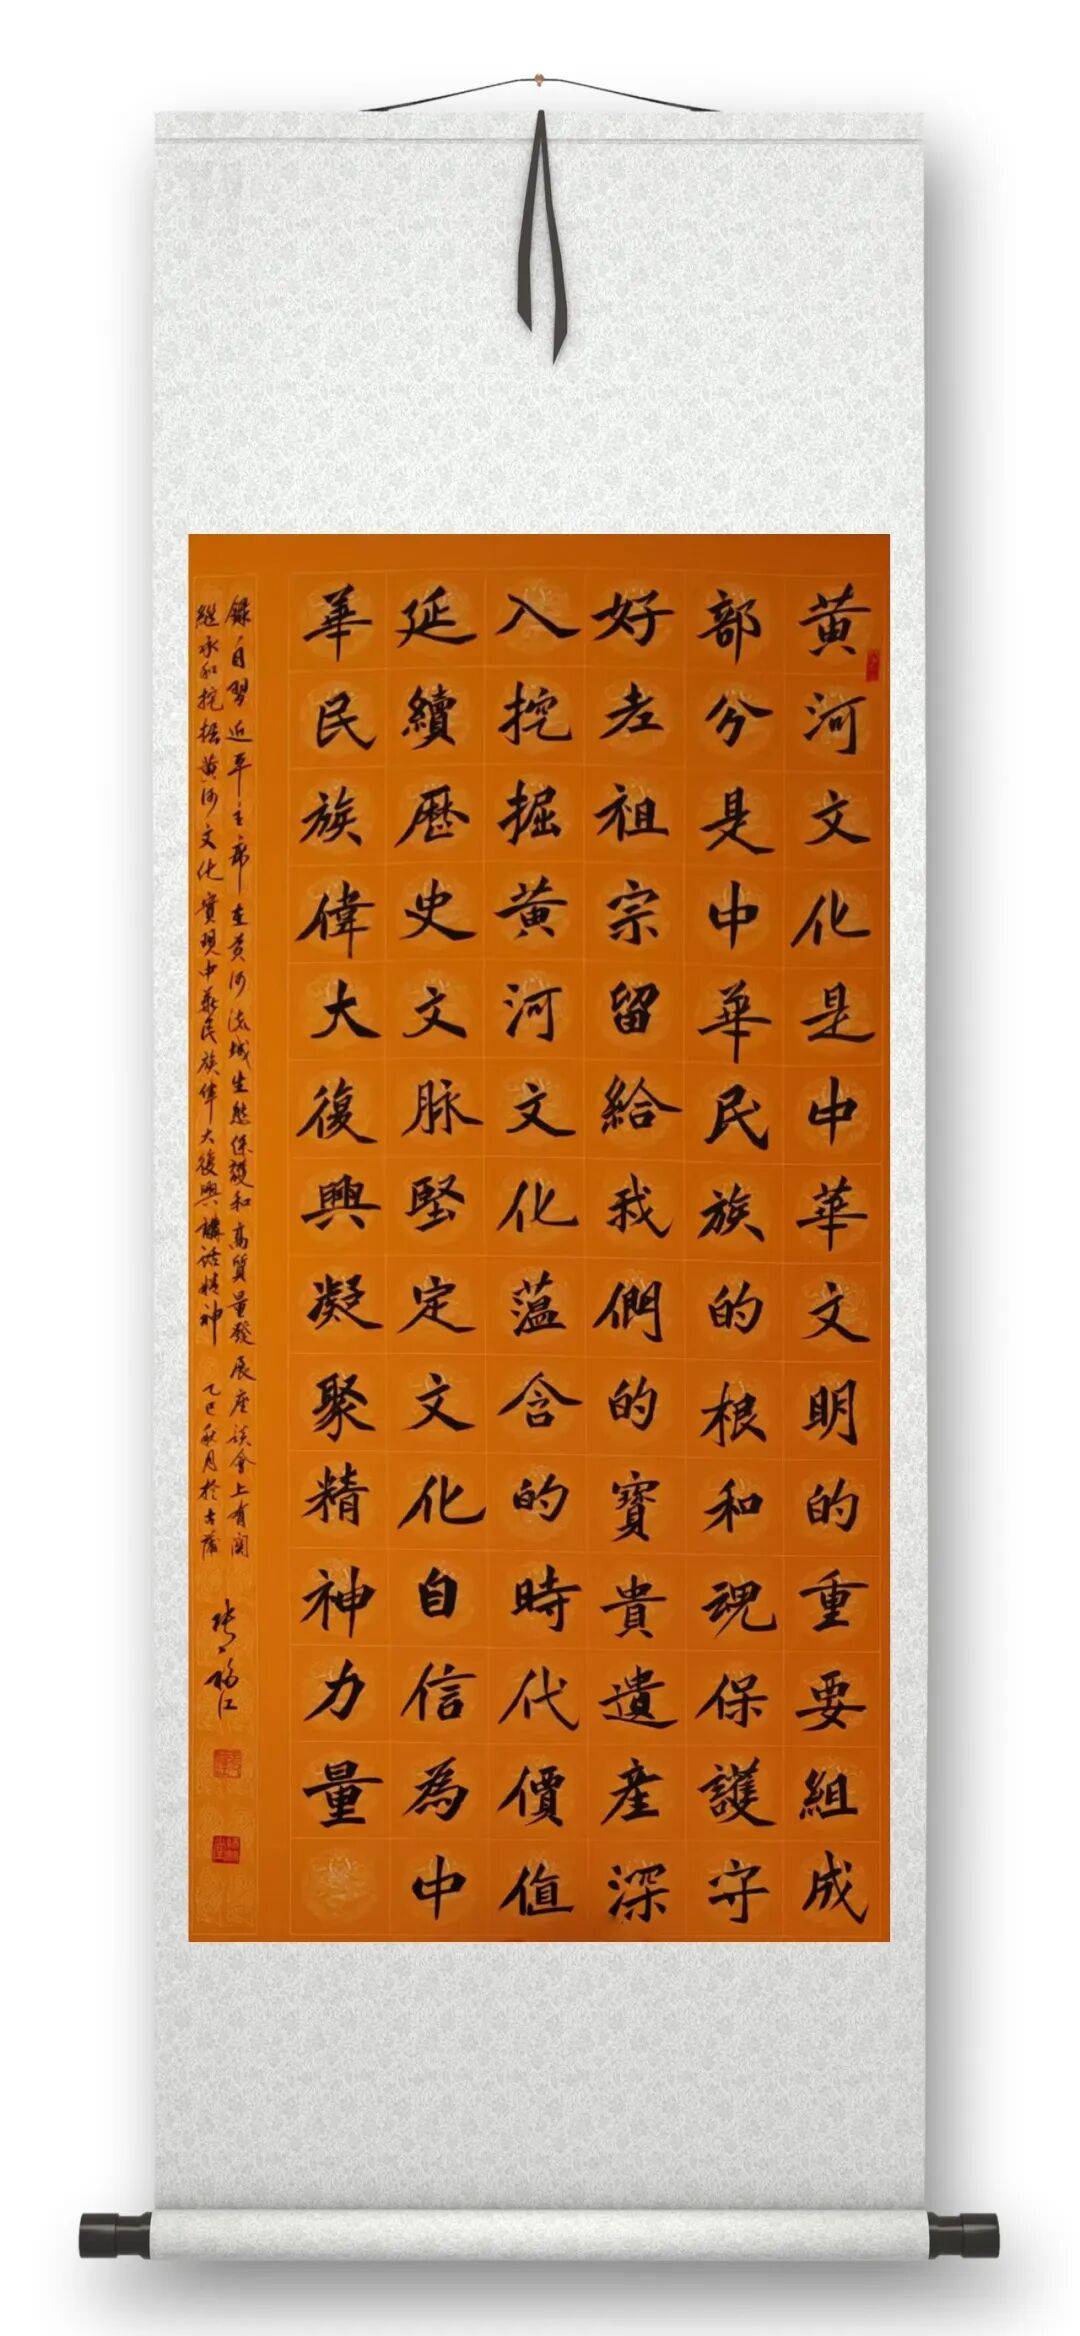 黄河文化是中華文明的重要組成
部分是中華民族的根和魂保護守
好老祖宗留給我們的寶貴遺産深
入挖掘黄河文化藴含的時代價值
延續歷史文脉堅定文化自信為中
華民族偉大復興凝聚精神力量
錄自習近平主席在黄河流域生態保護和高質量發展座談會上有関
継承和挖掘黄河文化實現中華民族偉大復興講話精神 乙巳秋月於古蒲
張福江